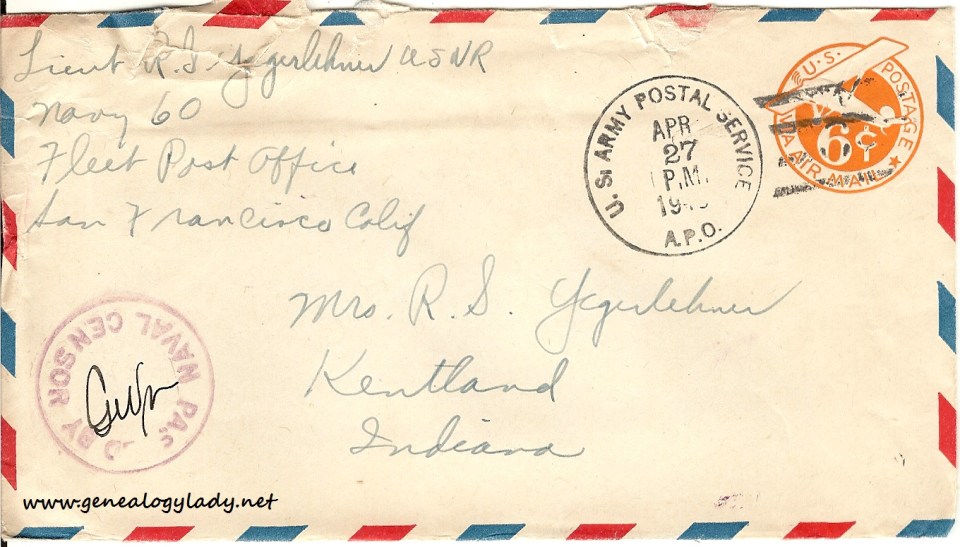 Lieut R.S. Yegerlehner USNR
Navy 60
Fleet Post Office
San Francisco Calif
U.S. ARMY POSTAL SERVICE
APR
27
P.M.
A.P.O.
U.S. POSTAGE
6¢
VIA AIR MAIL
Mrs. R. S. Yegerlehner
Kentland
Indiana
BY NAVAL CENSOR
www.genealogylady.net